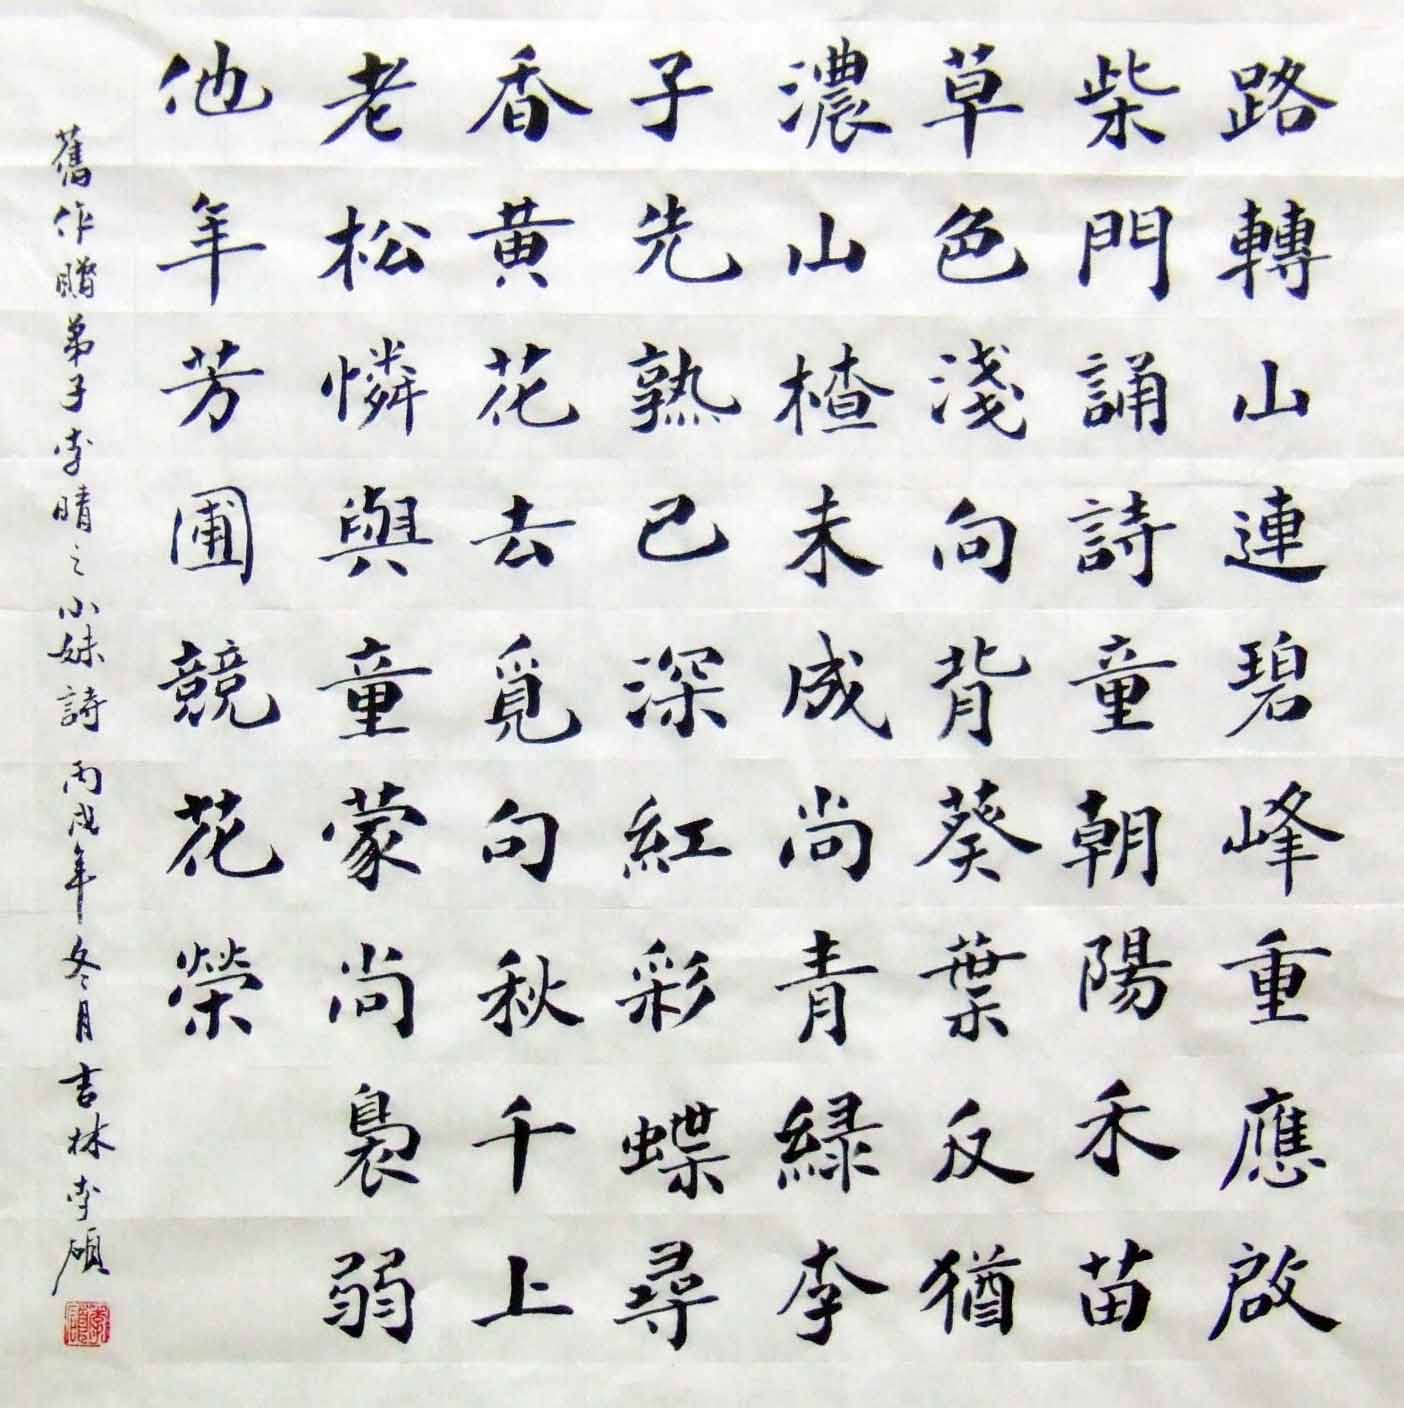 路轉山連碧峰重應啟
柴門誦詩童朝陽禾苗
草色淺向背葵葉反猶
濃山楂未成尚青綠李
子先熟已深紅彩蝶尋
香黃花去覓句秋千上
老松憐與童蒙尚裊弱
他年芳圃競花榮
舊作贈弟子李晴之小妹詩丙戌年冬月吉林李碩